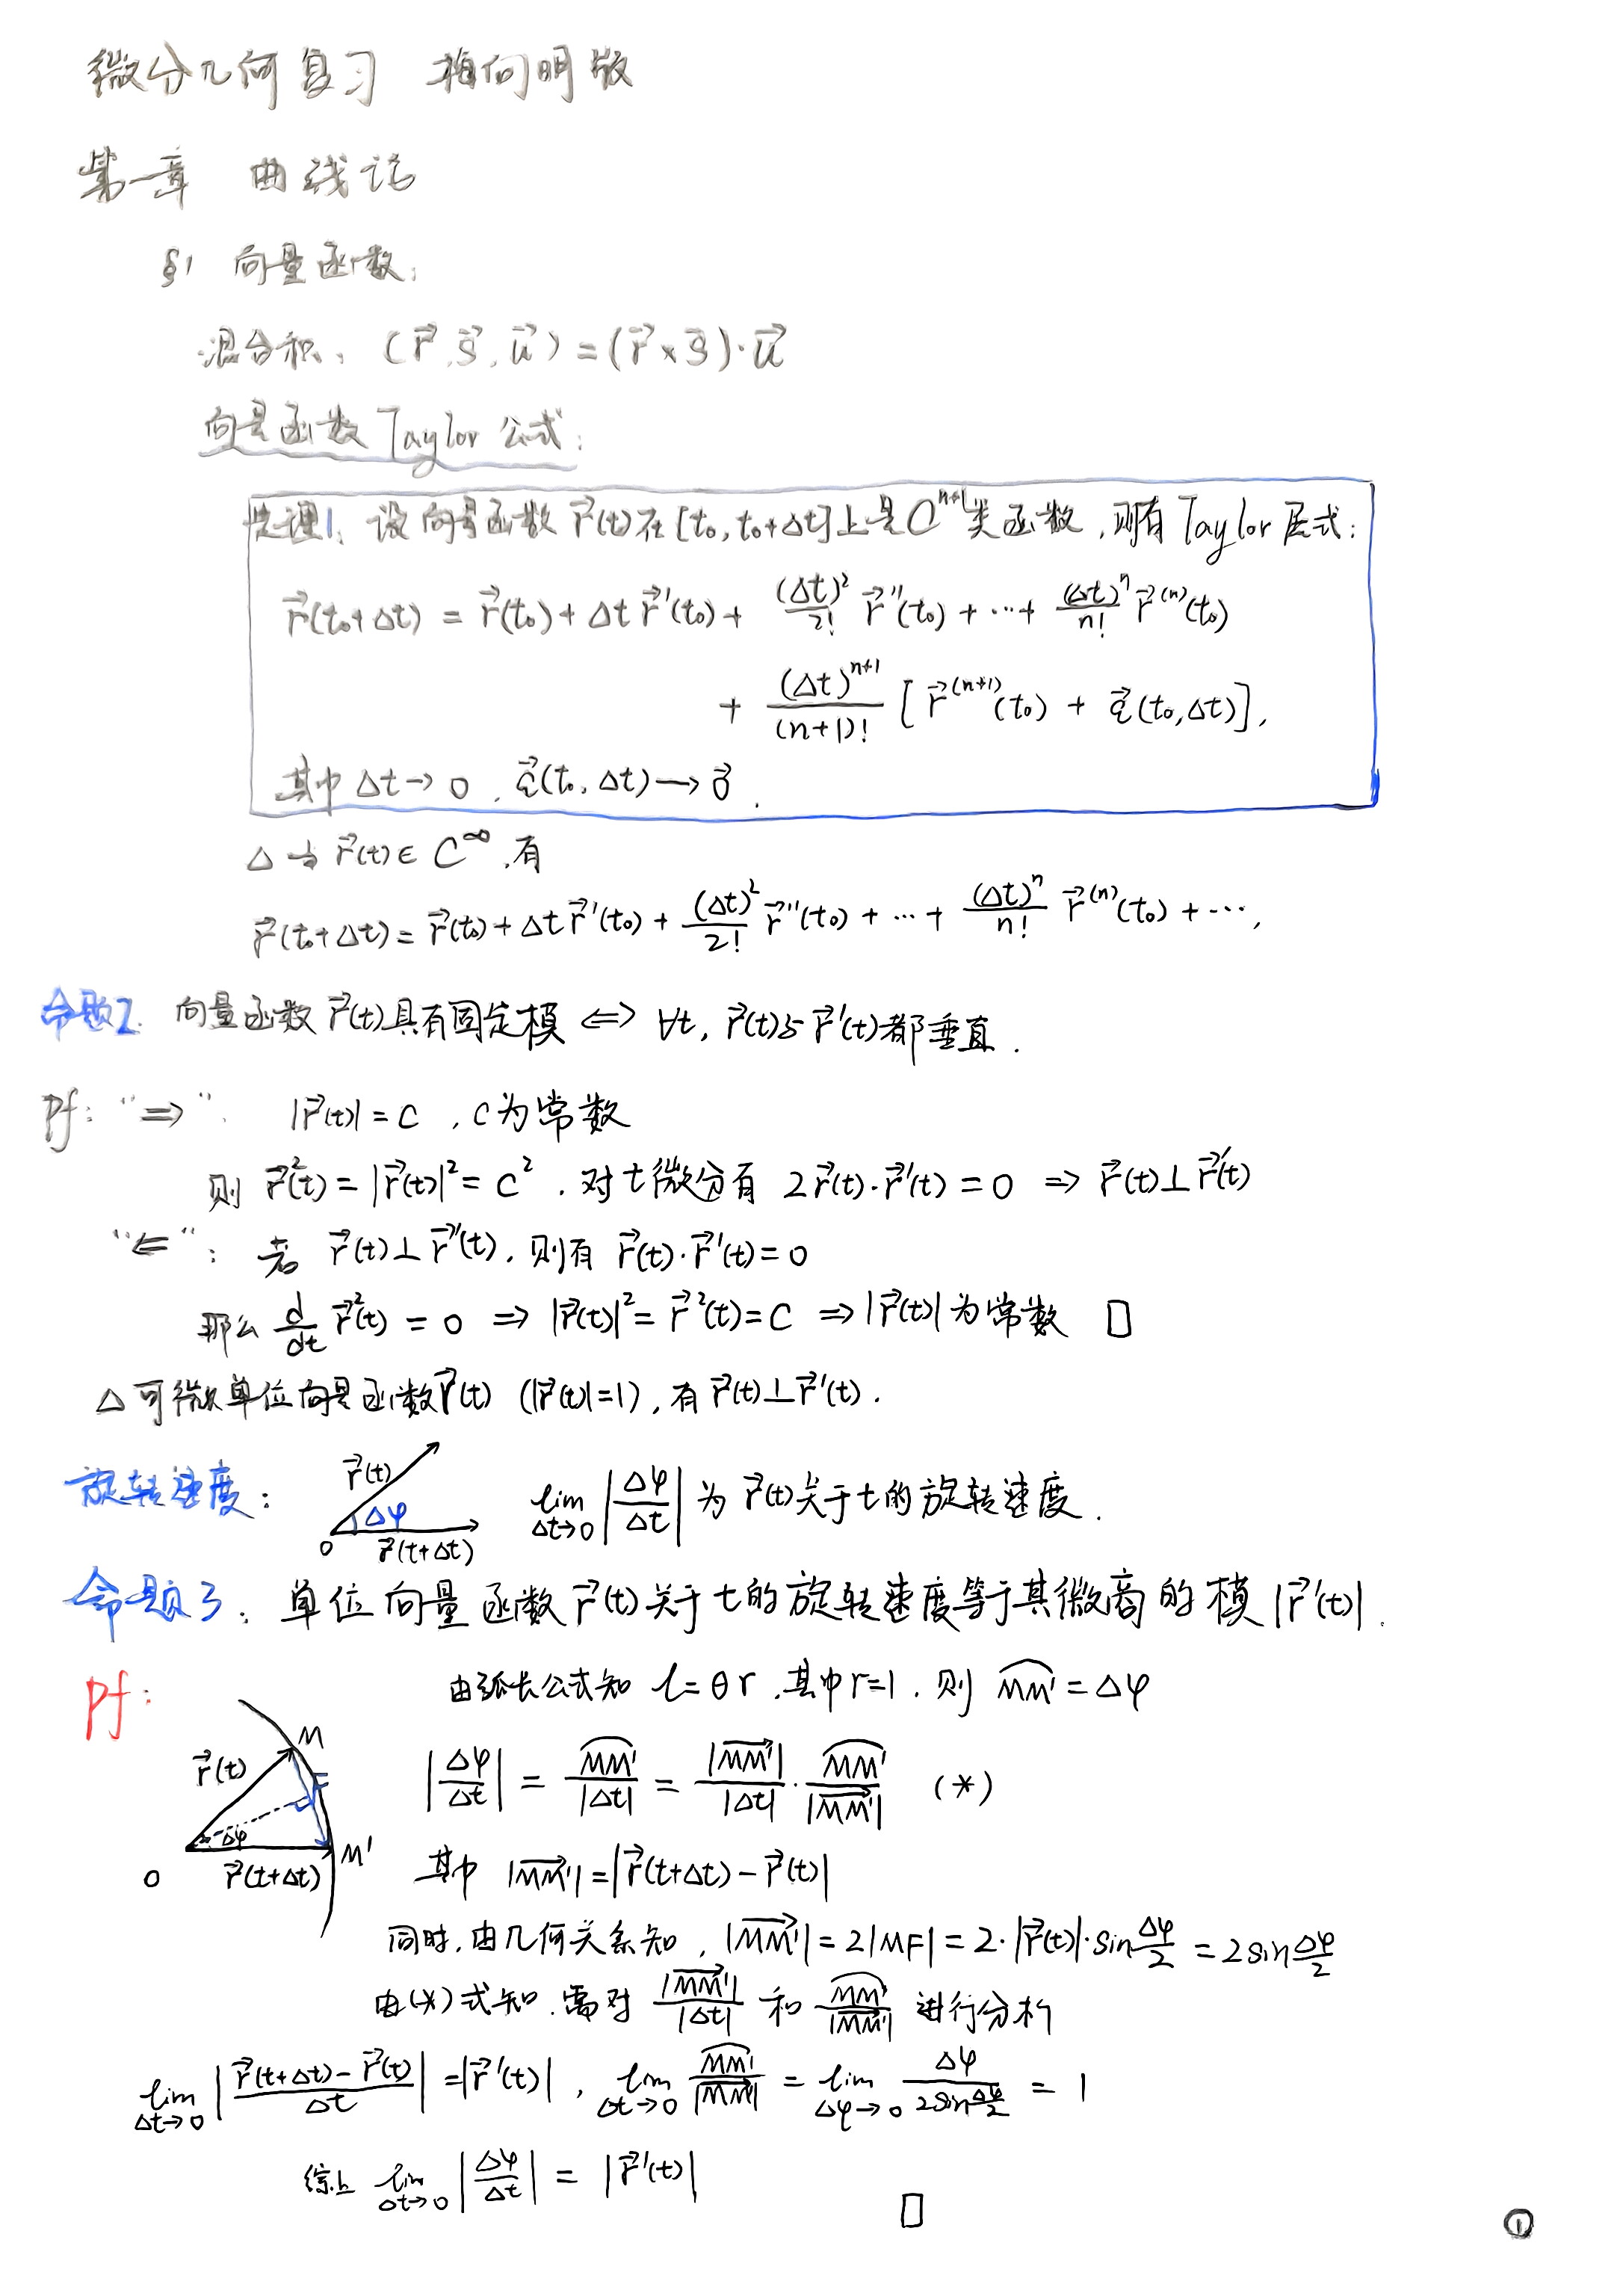 微分几何复习 梅向明版
第一章 曲线论
§1 向量函数:
混合积: (r⃗, s⃗, u⃗) = (r⃗ × s⃗)·u⃗
向量函数 Taylor 公式:
定理1: 设向量函数 r⃗(t) 在 [t₀, t₀+Δt] 上是 Cⁿ⁺¹ 类函数, 则有 Taylor 展式:
r⃗(t₀+Δt) = r⃗(t₀) + Δt r⃗'(t₀) + (Δt)²/2! r⃗''(t₀) + ⋯ + (Δt)ⁿ/n! r⃗⁽ⁿ⁾(t₀)
+ (Δt)ⁿ⁺¹/(n+1)! [r⃗⁽ⁿ⁺¹⁾(t₀) + ε⃗(t₀,Δt)],
其中 Δt→0, ε⃗(t₀,Δt) → 0⃗.
△ 当 r⃗(t) ∈ C^∞, 有
r⃗(t₀+Δt) = r⃗(t₀) + Δt r⃗'(t₀) + (Δt)²/2! r⃗''(t₀) + ⋯ + (Δt)ⁿ/n! r⃗⁽ⁿ⁾(t₀) + ⋯,
命题2. 向量函数 r⃗(t) 具有固定模 ⇔ ∀t, r⃗(t)与r⃗'(t)都垂直.
Pf: "⇒". |r⃗(t)| = C, C为常数
则 r⃗²(t) = |r⃗(t)|² = C². 对t微分有 2r⃗(t)·r⃗'(t) = 0 ⇒ r⃗(t)⊥r⃗'(t)
"⇐": 若 r⃗(t)⊥r⃗'(t), 则有 r⃗(t)·r⃗'(t)=0
那么 d/dt r⃗²(t) = 0 ⇒ |r⃗(t)|² = r⃗²(t) = C ⇒ |r⃗(t)| 为常数 □
△ 可微单位向量函数r⃗(t) (|r⃗(t)|=1), 有 r⃗(t)⊥r⃗'(t).
旋转速度: r⃗(t) Δφ O r⃗(t+Δt) lim_{Δt→0} |Δφ/Δt| 为 r⃗(t)关于t的旋转速度.
命题3: 单位向量函数 r⃗(t)关于t的旋转速度等于其微商的模 |r⃗'(t)|.
Pf: 由弧长公式知 l=θr, 其中r=1, 则 ⌒MM' = Δφ
r⃗(t) M F Δφ O r⃗(t+Δt) M'
|Δφ/Δt| = ⌒MM'/|Δt| = |MM'→|/|Δt| · ⌒MM'/|MM'→| (*)
其中 |MM'→| = |r⃗(t+Δt) − r⃗(t)|
同时, 由几何关系知, |MM'→| = 2|MF| = 2·|r⃗(t)|·sin Δφ/2 = 2 sin Δφ/2
由(*)式知, 需对 |MM'→|/|Δt| 和 ⌒MM'/|MM'→| 进行分析
lim_{Δt→0} |(r⃗(t+Δt) − r⃗(t))/Δt| = |r⃗'(t)|, lim_{Δt→0} ⌒MM'/|MM'→| = lim_{Δφ→0} Δφ/(2sin Δφ/2) = 1
综上 lim_{Δt→0} |Δφ/Δt| = |r⃗'(t)|
□
①